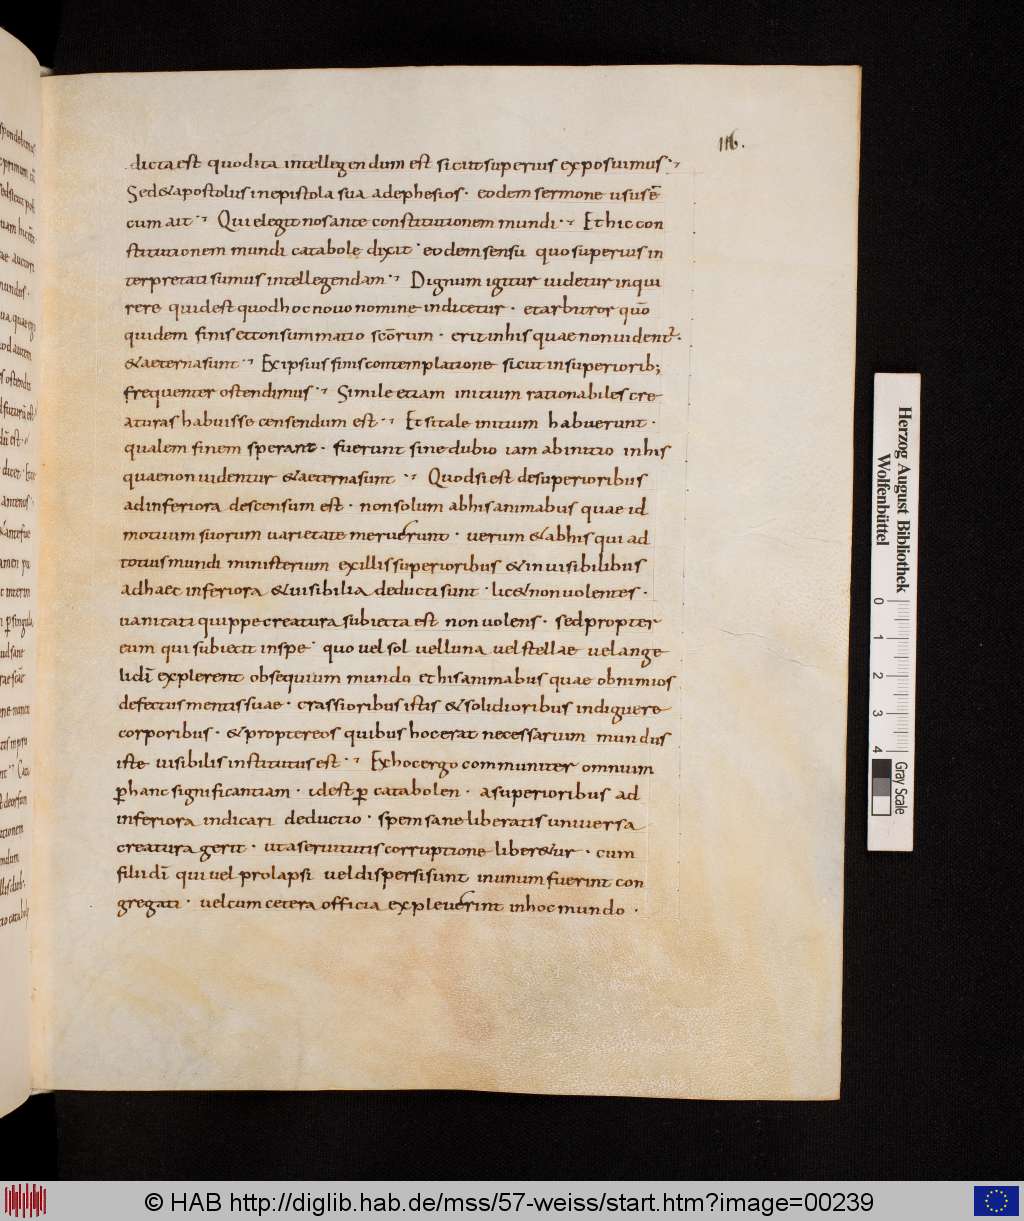 116.
dicta est quod ita intellegendum est sicut superius exposuimus
Sed & apostolus in epistola sua ad ephesios · eodem sermone usus ē
cum ait · Qui elegit nos ante constitutionem mundi · Et hic con
stitutionem mundi catabolę dixit · eodem sensu quo superius in
terpretati sumus intellegendam · Dignum igitur uidetur inqui
rere quid est quod hoc nouo nomine indicetur · et arbitror quō
quidem finis et consummatio scōrum · erit in his quae non uident᷑ ·
& aeterna sunt · Ex ipsius finis contemplatione sicut in superiorib;
frequenter ostendimus · Simile etiam initium rationabiles cre
aturas habuisse censendum est · Et si tale initium habuerunt ·
qualem finem sperant · fuerunt sine dubio iam ab initio in his
quae non uidentur & aeterna sunt · Quod si est de superioribus
ad inferiora descensum est · non solum ab his animabus quae id
motuum suorum uarietate meruerunt · uerum & ab his qui ad
totius mundi ministerium ex illis superioribus & inuisibilibus
ad haec inferiora & uisibilia deducti sunt · lic& non uolentes ·
uanitati quippe creatura subiecta est non uolens · sed propter
eum qui subiecit in spe · quo uel sol uel luna uel stellae uel ange
li dī explerent obsequium mundo et his animabus quae ob nimios
defectus mentis suae · crassioribus istis & solidioribus indiguere
corporibus · & propter eos quibus hoc erat necessarium mundus
iste uisibilis institutus est · Ex hoc ergo communiter omnium
ꝑ hanc significantiam · id est ꝑ catabolen · a superioribus ad
inferiora indicari deductio · spem sane libertatis uniuersa
creatura gerit · ut a seruitutis corruptione liber&ur · cum
filii dī qui uel prolapsi uel dispersi sunt in unum fuerint con
gregati · uel cum cetera officia expleuerint in hoc mundo ·
Herzog August Bibliothek
Wolfenbüttel
0 1 2 3 4
Gray Scale
© HAB http://diglib.hab.de/mss/57-weiss/start.htm?image=00239